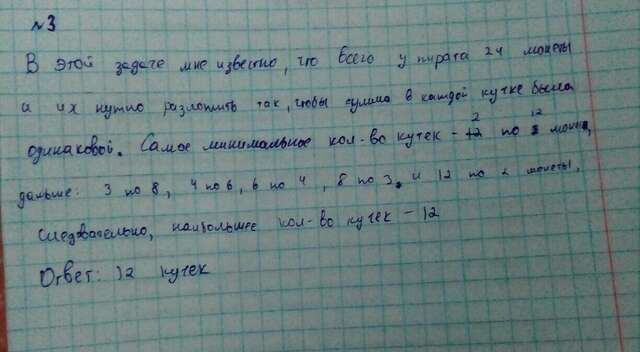 №3
В этой задаче мне известно, что всего у пирата 24 монеты
и их нужно разложить так, чтобы сумма в каждой кучке была
одинаковой. Самое минимальное кол-во кучек - 2 по 12 монет,
дальше: 3 по 8, 4 по 6, 6 по 4, 8 по 3 и 12 по 2 монеты.
Следовательно, наибольшее кол-во кучек - 12
Ответ: 12 кучек